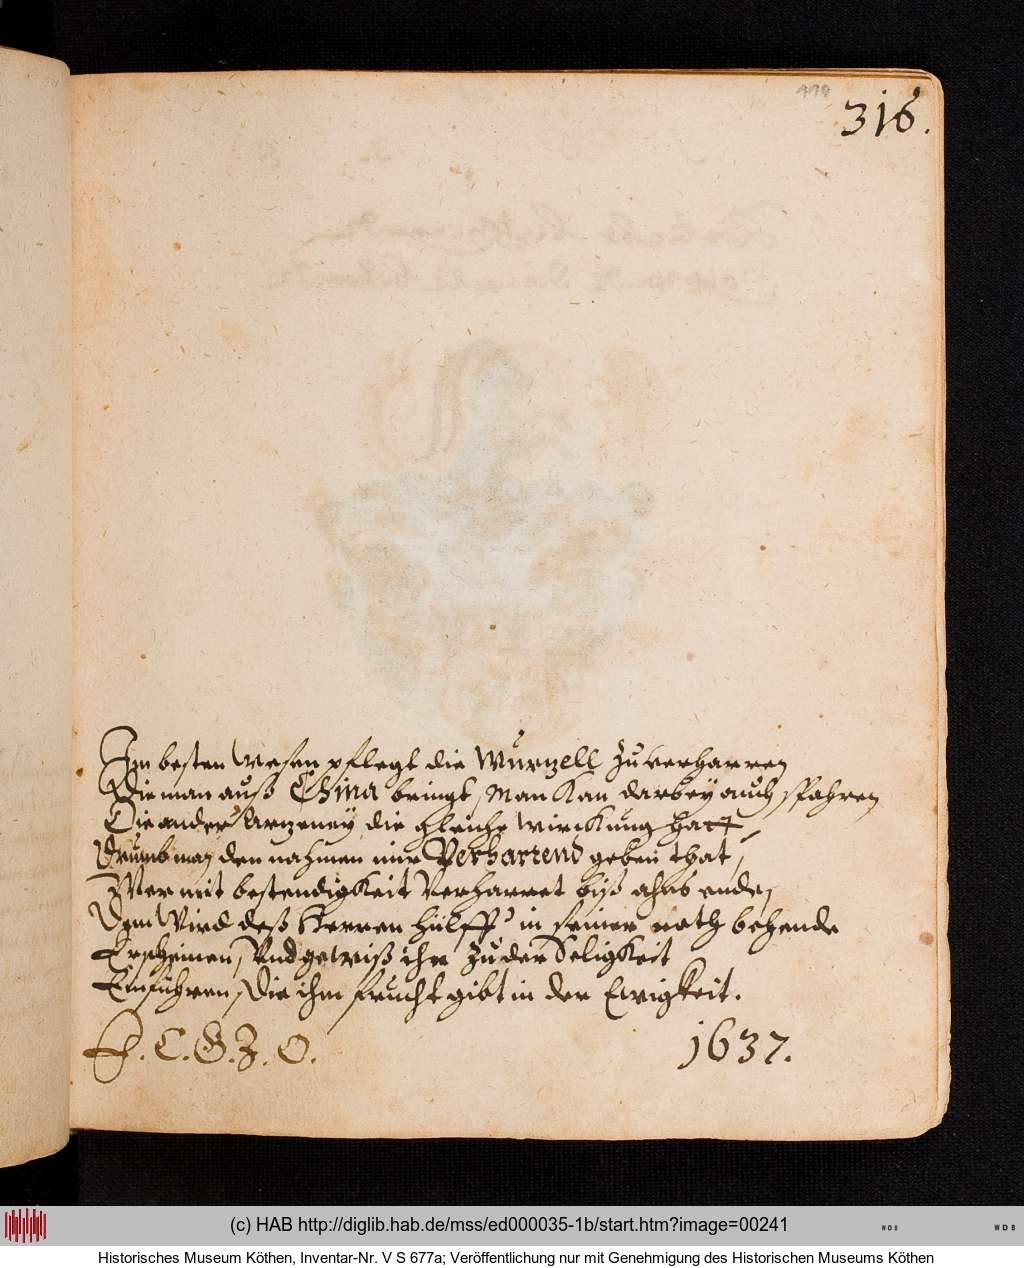 316.
Im besten Wesen pflegt die Wurzell zu verharren
Die man auß China bringt, Man Kan darbey auch spahren
Die ander Arzeney, die gleiche wirckung hatt,
Drumb man den nahmen mir Verharrend geben that,
Wer mit bestendigkeit Verharret biß ahns ende,
Dem Wird deß Herren hülff' in seiner noth behende
Erscheinen, Und gewiß ihn zu der Seligkeit
Einführen, Die ihm frucht gibt in der Ewigkeit.
C. G. Z. O.
1637.
(c) HAB http://diglib.hab.de/mss/ed000035-1b/start.htm?image=00241
WDB
WDB
Historisches Museum Köthen, Inventar-Nr. V S 677a; Veröffentlichung nur mit Genehmigung des Historischen Museums Köthen